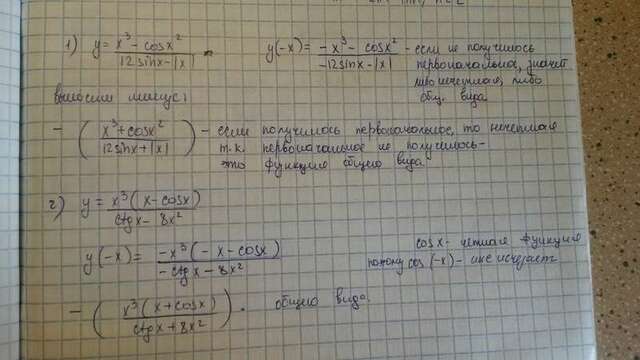 1) y = x³ - cosx² / 12sinx - |x|
y(-x) = -x³ - cosx² / -12sinx - |x| - если не получилось
первоначальная, значит
либо нечетная, либо
общ. вида
выносим минус:
- (x³ + cosx² / 12sinx + |x|) - если получилось первоначальное, то нечетная
т.к. первоначальное не получилось-
это функция общего вида
2) y = x³(x - cosx) / ctgx - 8x²
y(-x) = -x³(-x - cosx) / -ctgx - 8x²
cosx - четная функция
поэтому cos(-x) - исчезает
- (x³(x + cosx) / ctgx + 8x²) - общего вида.